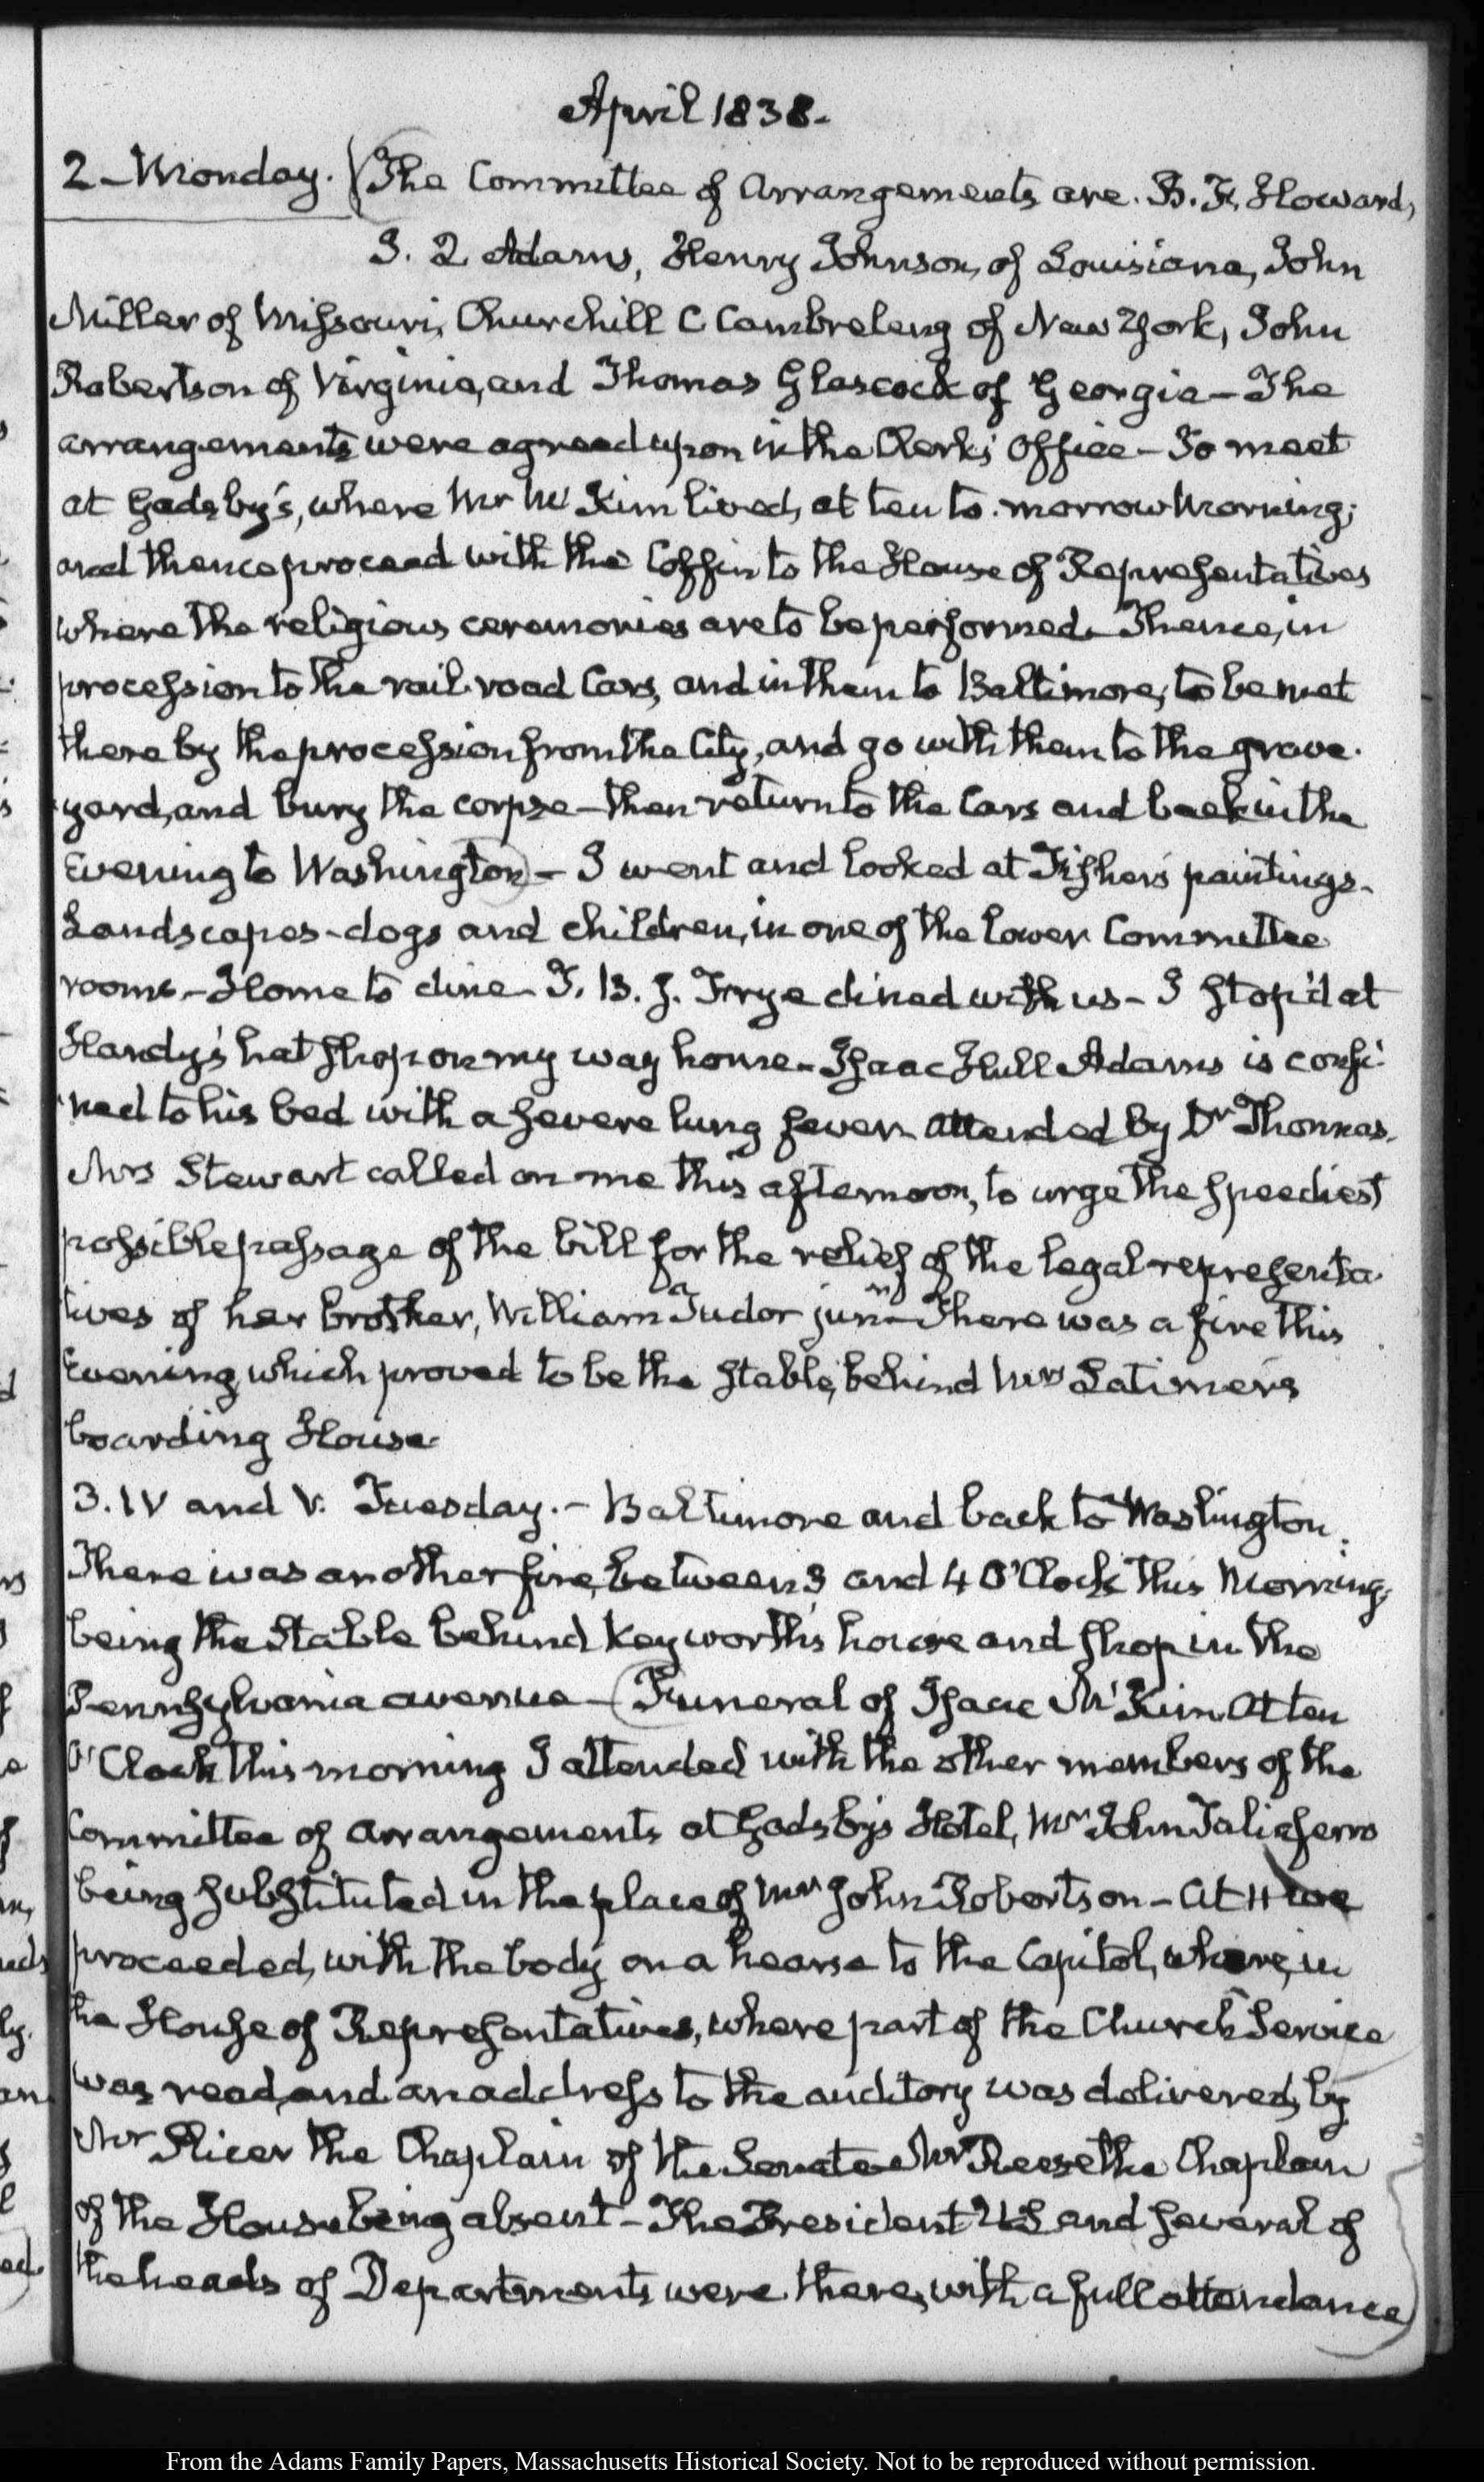 April 1838.
2 - Monday. (The Committee of Arrangements are. B. F. Howard,
J. Q Adams, Henry Johnson, of Louisiana, John
Miller of Missouri, Churchill C Cambreleng of New York, John
Robertson of Virginia, and Thomas Glascock of Georgia - The
arrangements were agreed upon in the Clerk's Office - To meet
at Gadsby's, where Mr Mc Kim lived, at ten to-morrow Morning;
and thence proceed with the Coffin to the House of Representatives
where the religious ceremonies are to be performed - Thence, in
procession to the rail-road Cars, and in them to Baltimore; to be met
there by the procession from the City, and go with them to the grave-
yard, and bury the corpse - then return to the Cars and back in the
Evening to Washington) - I went and looked at Fisher's paintings -
Landscapes - dogs and children, in one of the lower Committee
rooms - Home to dine - T. B. J. Frye dined with us - I stop'd at
Handy's hat shop on my way home - Isaac Hull Adams is confi-
ned to his bed with a severe lung fever attended by Dr Thomas.
Mrs Stewart called on me this afternoon, to urge the speediest
possible passage of the bill for the relief of the legal representa-
tives of her brother, William Tudor junr - There was a fire this
Evening, which proved to be the stable, behind Mrs Latimer's
boarding House
3. IV and V. Tuesday. - Baltimore and back to Washington.
There was another fire, between 3 and 4 O'Clock this Morning;
being the Stable behind Keyworth's house and shop in the
Pennsylvania avenue - (Funeral of Isaac Mc Kim. At ten
O'Clock this morning I attended with the other members of the
Committee of Arrangements at Gadsby's Hotel, Mr John Taliaferro
being substituted in the place of Mr John Robertson - At 11 we
proceeded, with the body on a hearse to the Capitol, where, in
the House of Representatives, where part of the Church Service
was read, and an address to the auditory was delivered, by
Mr Slicer the Chaplain of the Senate Mr Reese the Chaplain
of the House being absent - The President U.S and several of
the heads of Departments were there, with a full attendance)
From the Adams Family Papers, Massachusetts Historical Society. Not to be reproduced without permission.